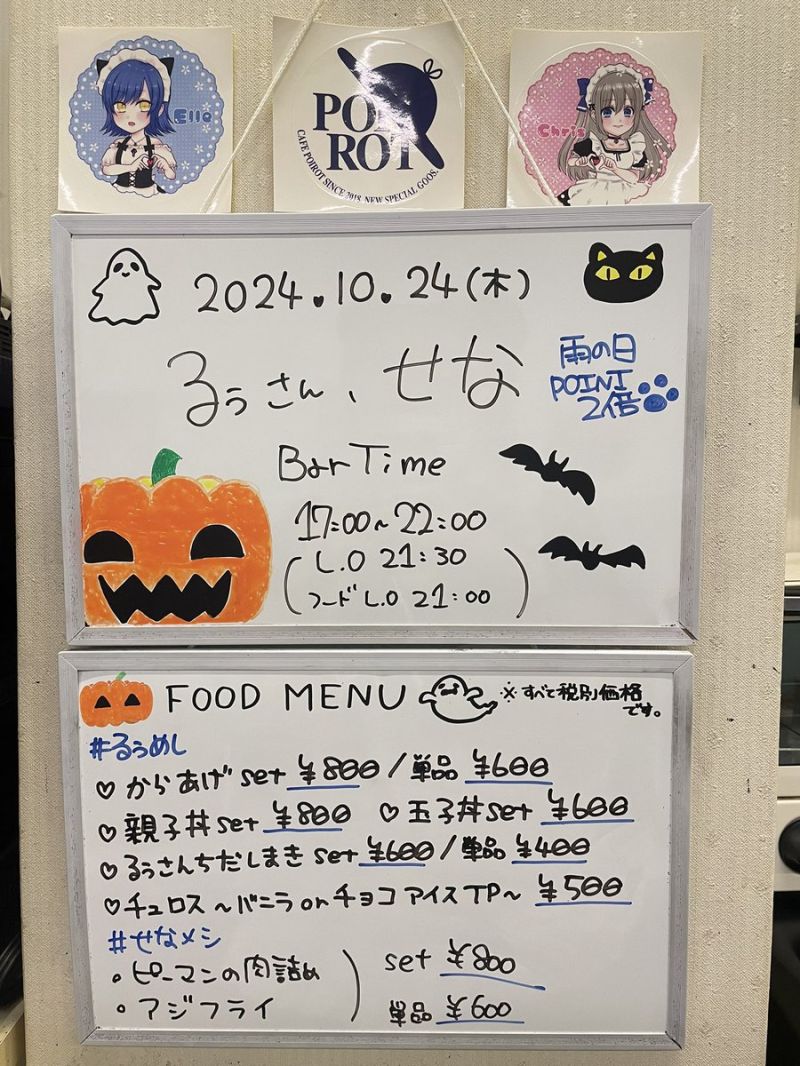 Ella
POIROT
CAFE POIROT SINCE 2018. NEW SPECIAL GOOS.
Chris
2024.10.24(木)
るぅさん、せな
雨の日
POINT
2倍
Bar Time
17:00~22:00
(L.O 21:30
フードL.O 21:00)
FOOD MENU
※すべて税別価格
です。
#るぅめし
♡からあげset ¥800/単品 ¥600
♡親子丼set ¥800 ♡玉子丼set ¥600
♡るぅさんちだしまきset ¥600/単品 ¥400
♡チュロス~バニラorチョコアイスTP~ ¥500
#せなメシ
・ピーマンの肉詰め
・アジフライ
set ¥800
単品 ¥600